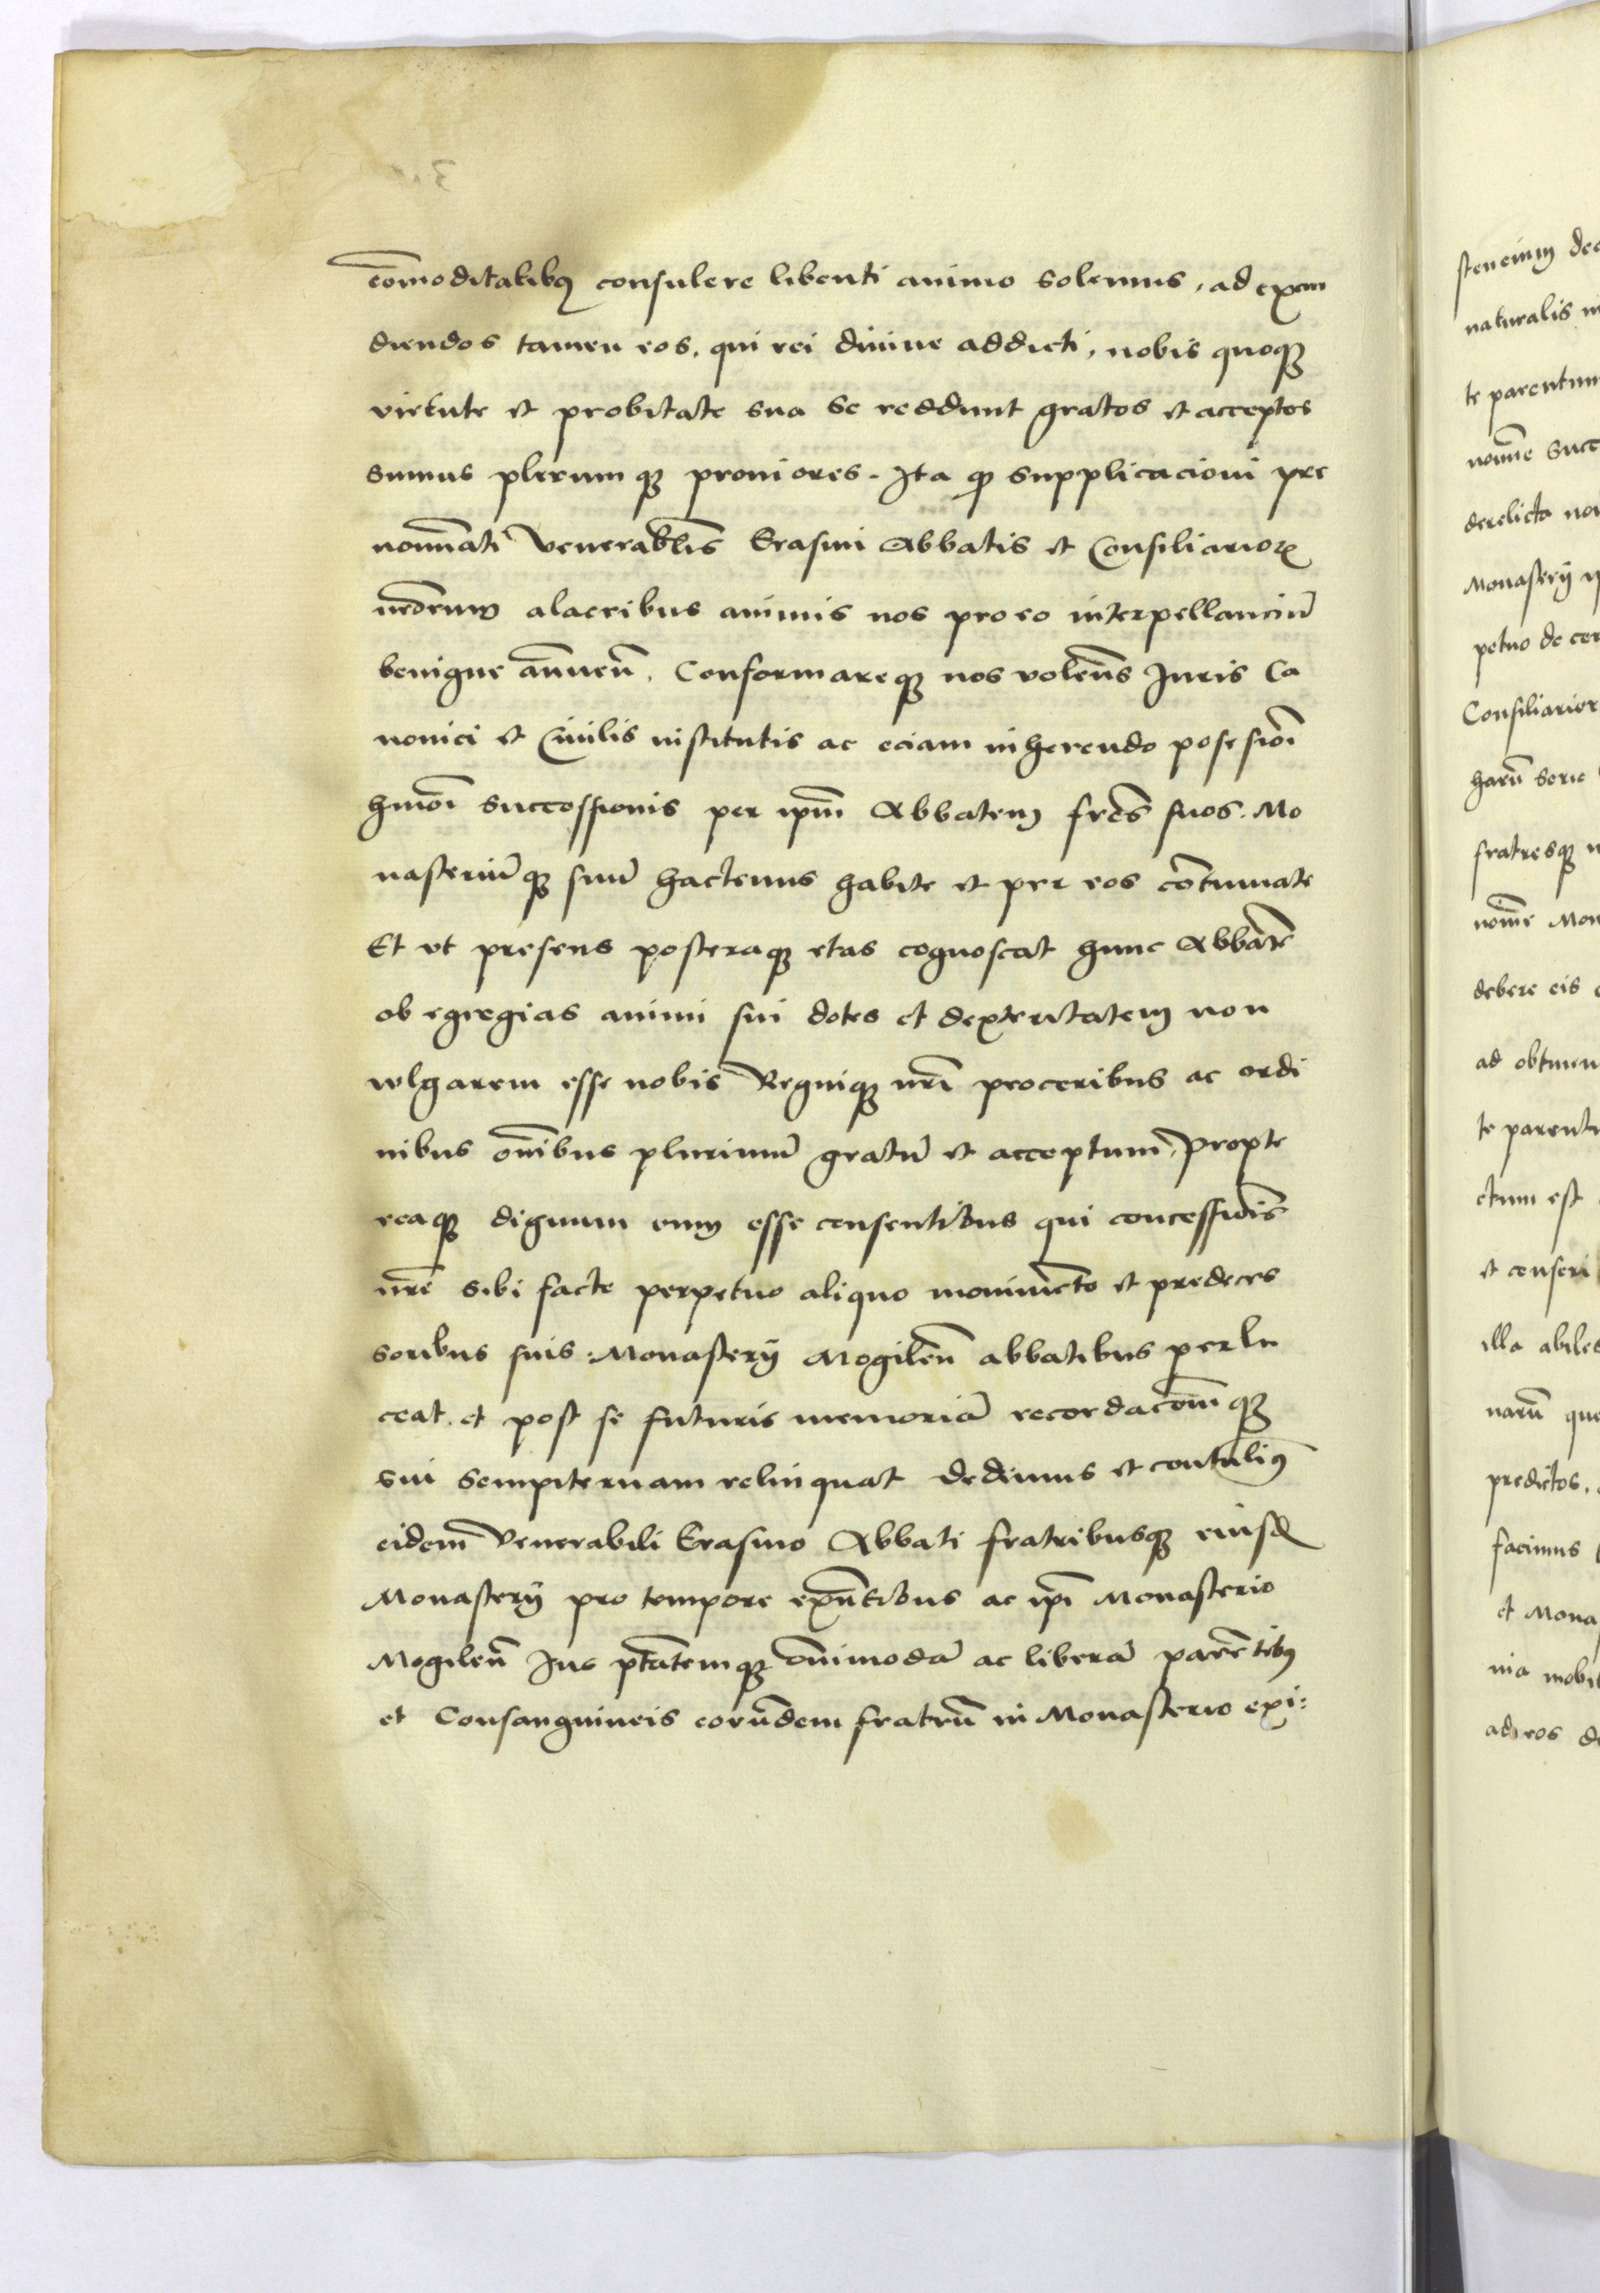 com̄oditatibꝫ consulere libenti animo solemus, ad exau
diendos tamen eos, qui rei diuine addicti, nobis quoqꝫ
virtute et probitate sua se reddunt gratos et acceptos
sumus plerumqꝫ proniores. Ita qꝫ supplicacioni pre
noīati Venerabilis Erasmi Abbatis et Consiliarioꝝ
nr̄orum alacribus animis nos pro eo interpellanciū
benigne annuen̄. Conformareqꝫ nos volen̄s Iuris Ca
nonici et Ciuilis institutis ac eciam inherendo posesioī
hmōi successionis per ipm̄ Abbatem fr̄es suos. Mo
nasteriūqꝫ suū hactenus habite et per eos cōtinuate
Et vt presens posteraqꝫ etas cognoscat hunc Abbatē
ob egregias animi sui dotes et dexteritatem non
wlgarem esse nobis Regniqꝫ nrī proceribus ac ordi
nibus oīnibus plurimū gratū et acceptum, Propte
reaqꝫ dignum eum esse censentibus qui concessiōis
nr̄e sibi facte perpetuo aliquo monimēto et predeces
soribus suis: Monasterÿ Mogilen̄ abbatibus perlu
ceat. et post se futuris memoriā recordacōnēqꝫ
sui sempiternam relinquat dedimus et contulimꝰ
eidem Venerabili Erasmo Abbati fratribusqꝫ eiusd
Monasterÿ pro tempore exn̄tibus ac ipī Monasterio
Mogilen̄ Ius ptātemqꝫ om̄imodā ac liberā parētibꝫ
et Consanguineis eorūdem fratrū in Monasterio exi:
naturalis
te parentum
derelicta
Monasterÿ
petuo de cer
Consiliarior
harū serie
fratresqꝫ
debere eis
ad obtinen
te parent
ctum est
et censeri
illa abiles
narū que
predictos.
facimus
et Mona
nia mobil
ad eos de